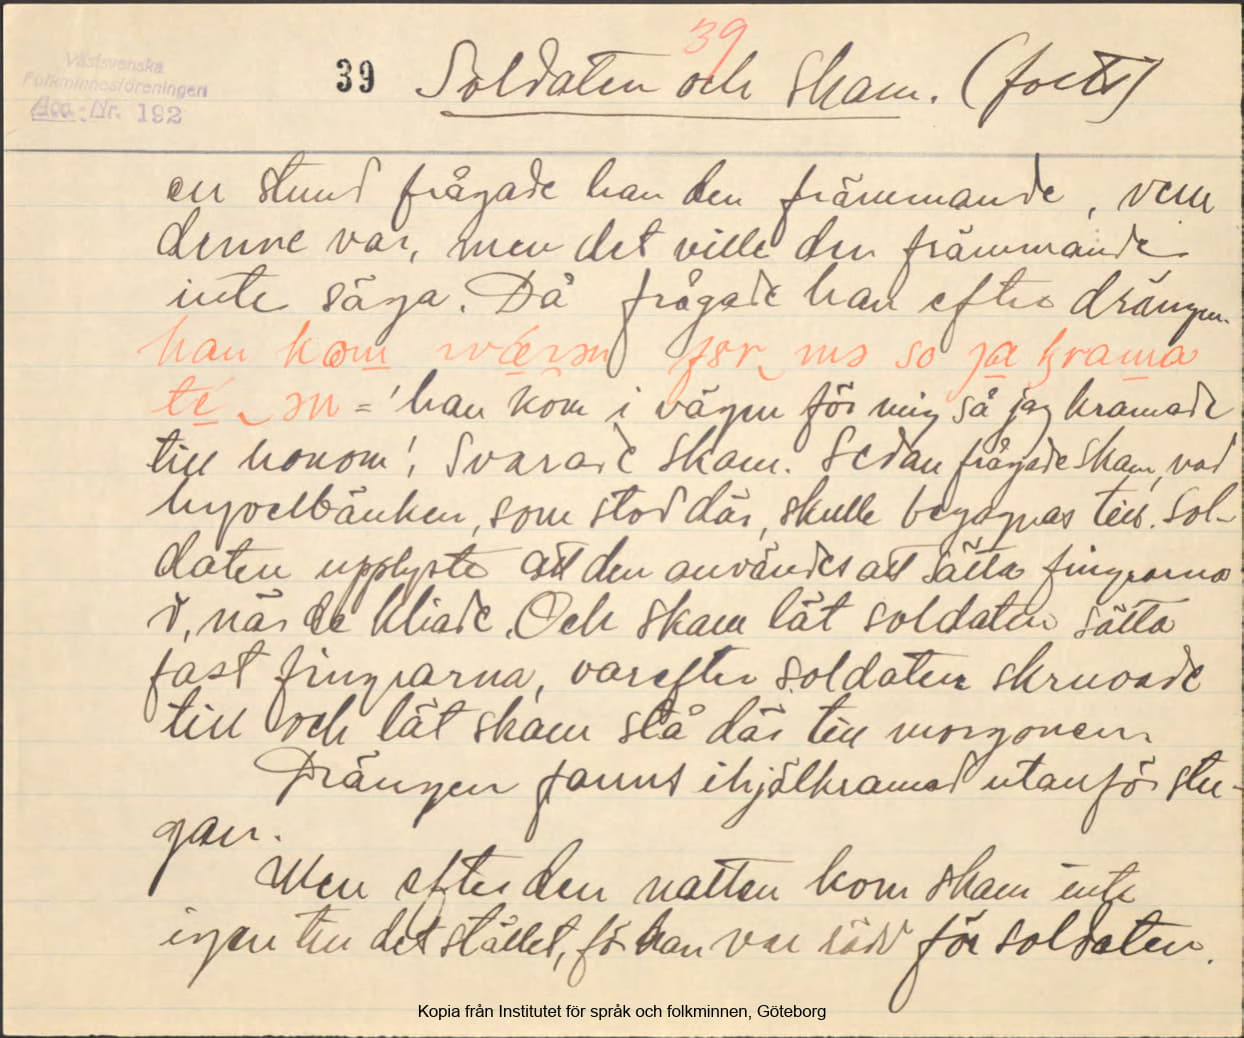 Västsvenska
Folkminnesföreningen
Acc.-Nr. 192
39
39
Soldaten och Skam. (forts)
en stund frågade han den främmande, vem
denne var, men det ville den främmande
inte säga. Då frågade han efter drängen.
han kom for so ja krama
te = 'han kom i vägen för mig så jag kramade
till honom', svarade skam. Sedan frågade skam, vad
hyvelbänken, som stod där, skulle begagnas till. Sol-
daten upplyste att den användes att sätta fingrarna
i, när de kliade. Och skam lät soldaten sätta
fast fingrarna, varefter soldaten skruvade
till och lät skam stå där till morgonen.
Drängen fanns ihjälkramad utanför stu-
gan.
Men efter den natten kom skam inte
igen till det stället, för han var rädd för soldaten.
Kopia från Institutet för språk och folkminnen, Göteborg